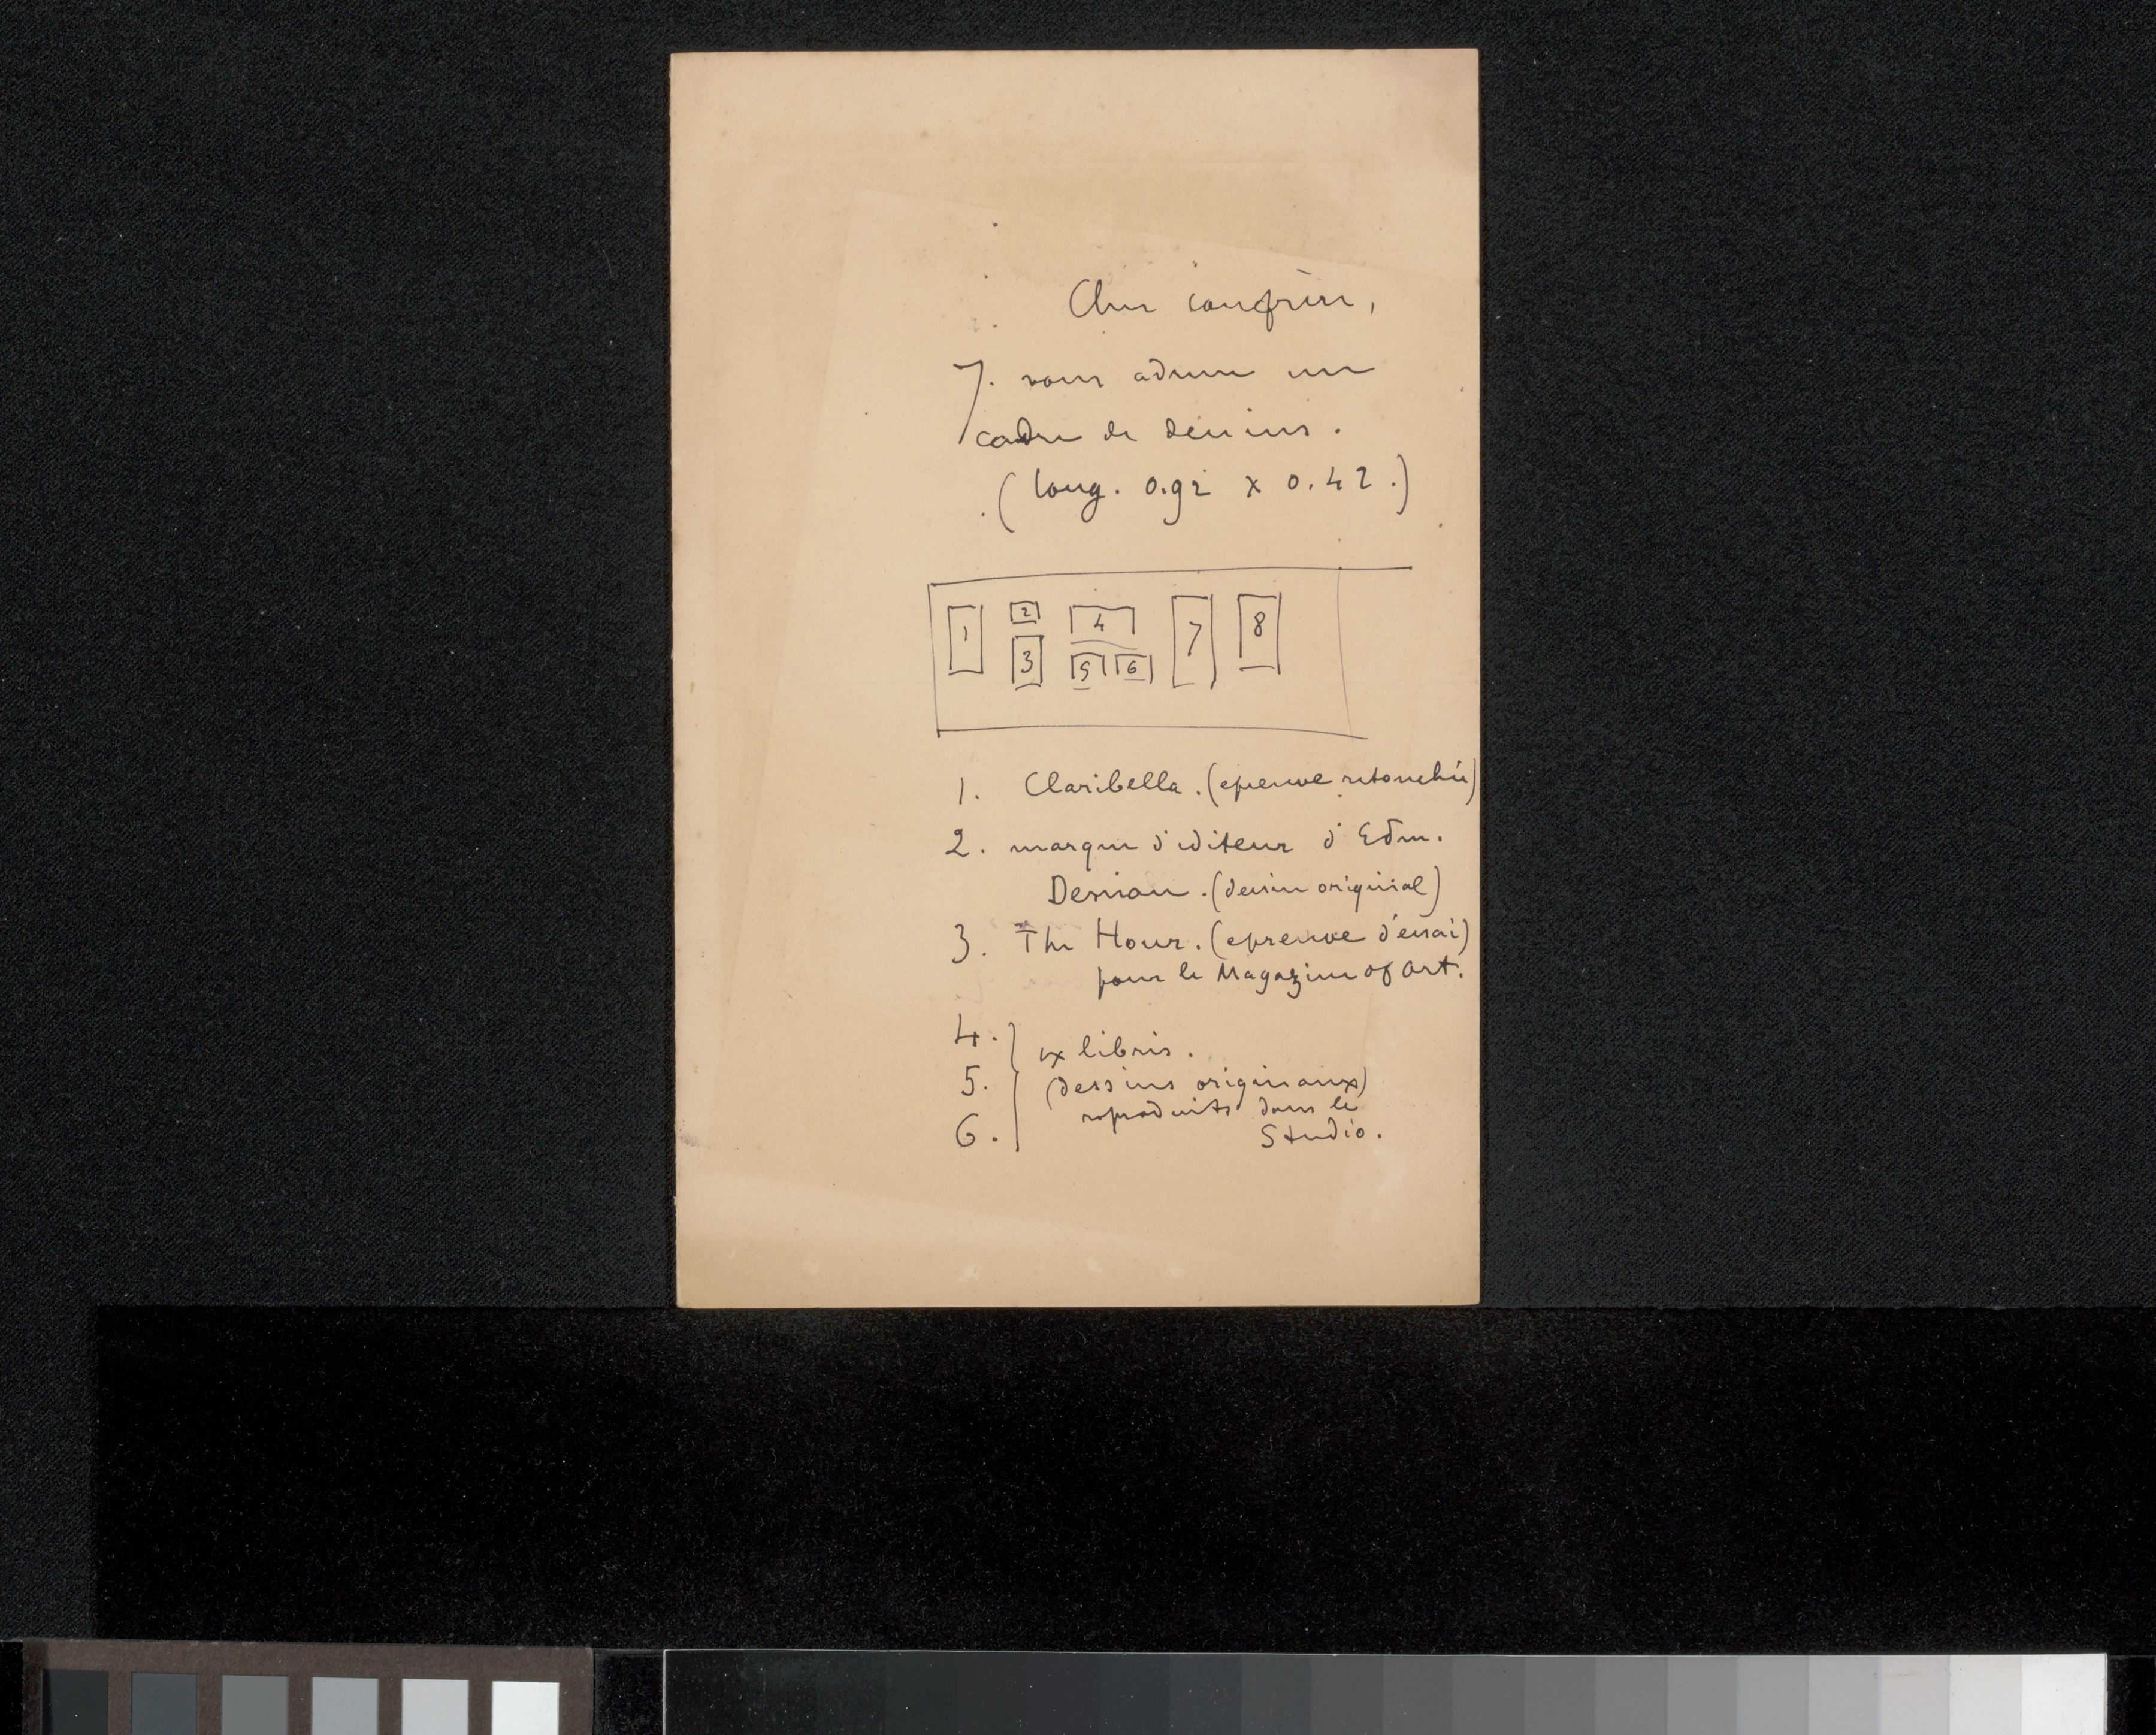 Cher confrère,
Je vous adresse un
cadre de dessins.
(long. 0.92 x 0.42.)
1 2 3 4 5 6 7 8
1. Claribella. (epreuve retouchée)
2. marque d'editeur d'Edm.
Deman. (dessin original)
3. The Hour. (epreuve d'essai)
pour le Magazine of Art.
4.
5.
6.
ex libris.
(dessins originaux)
reproduits dans le
Studio.